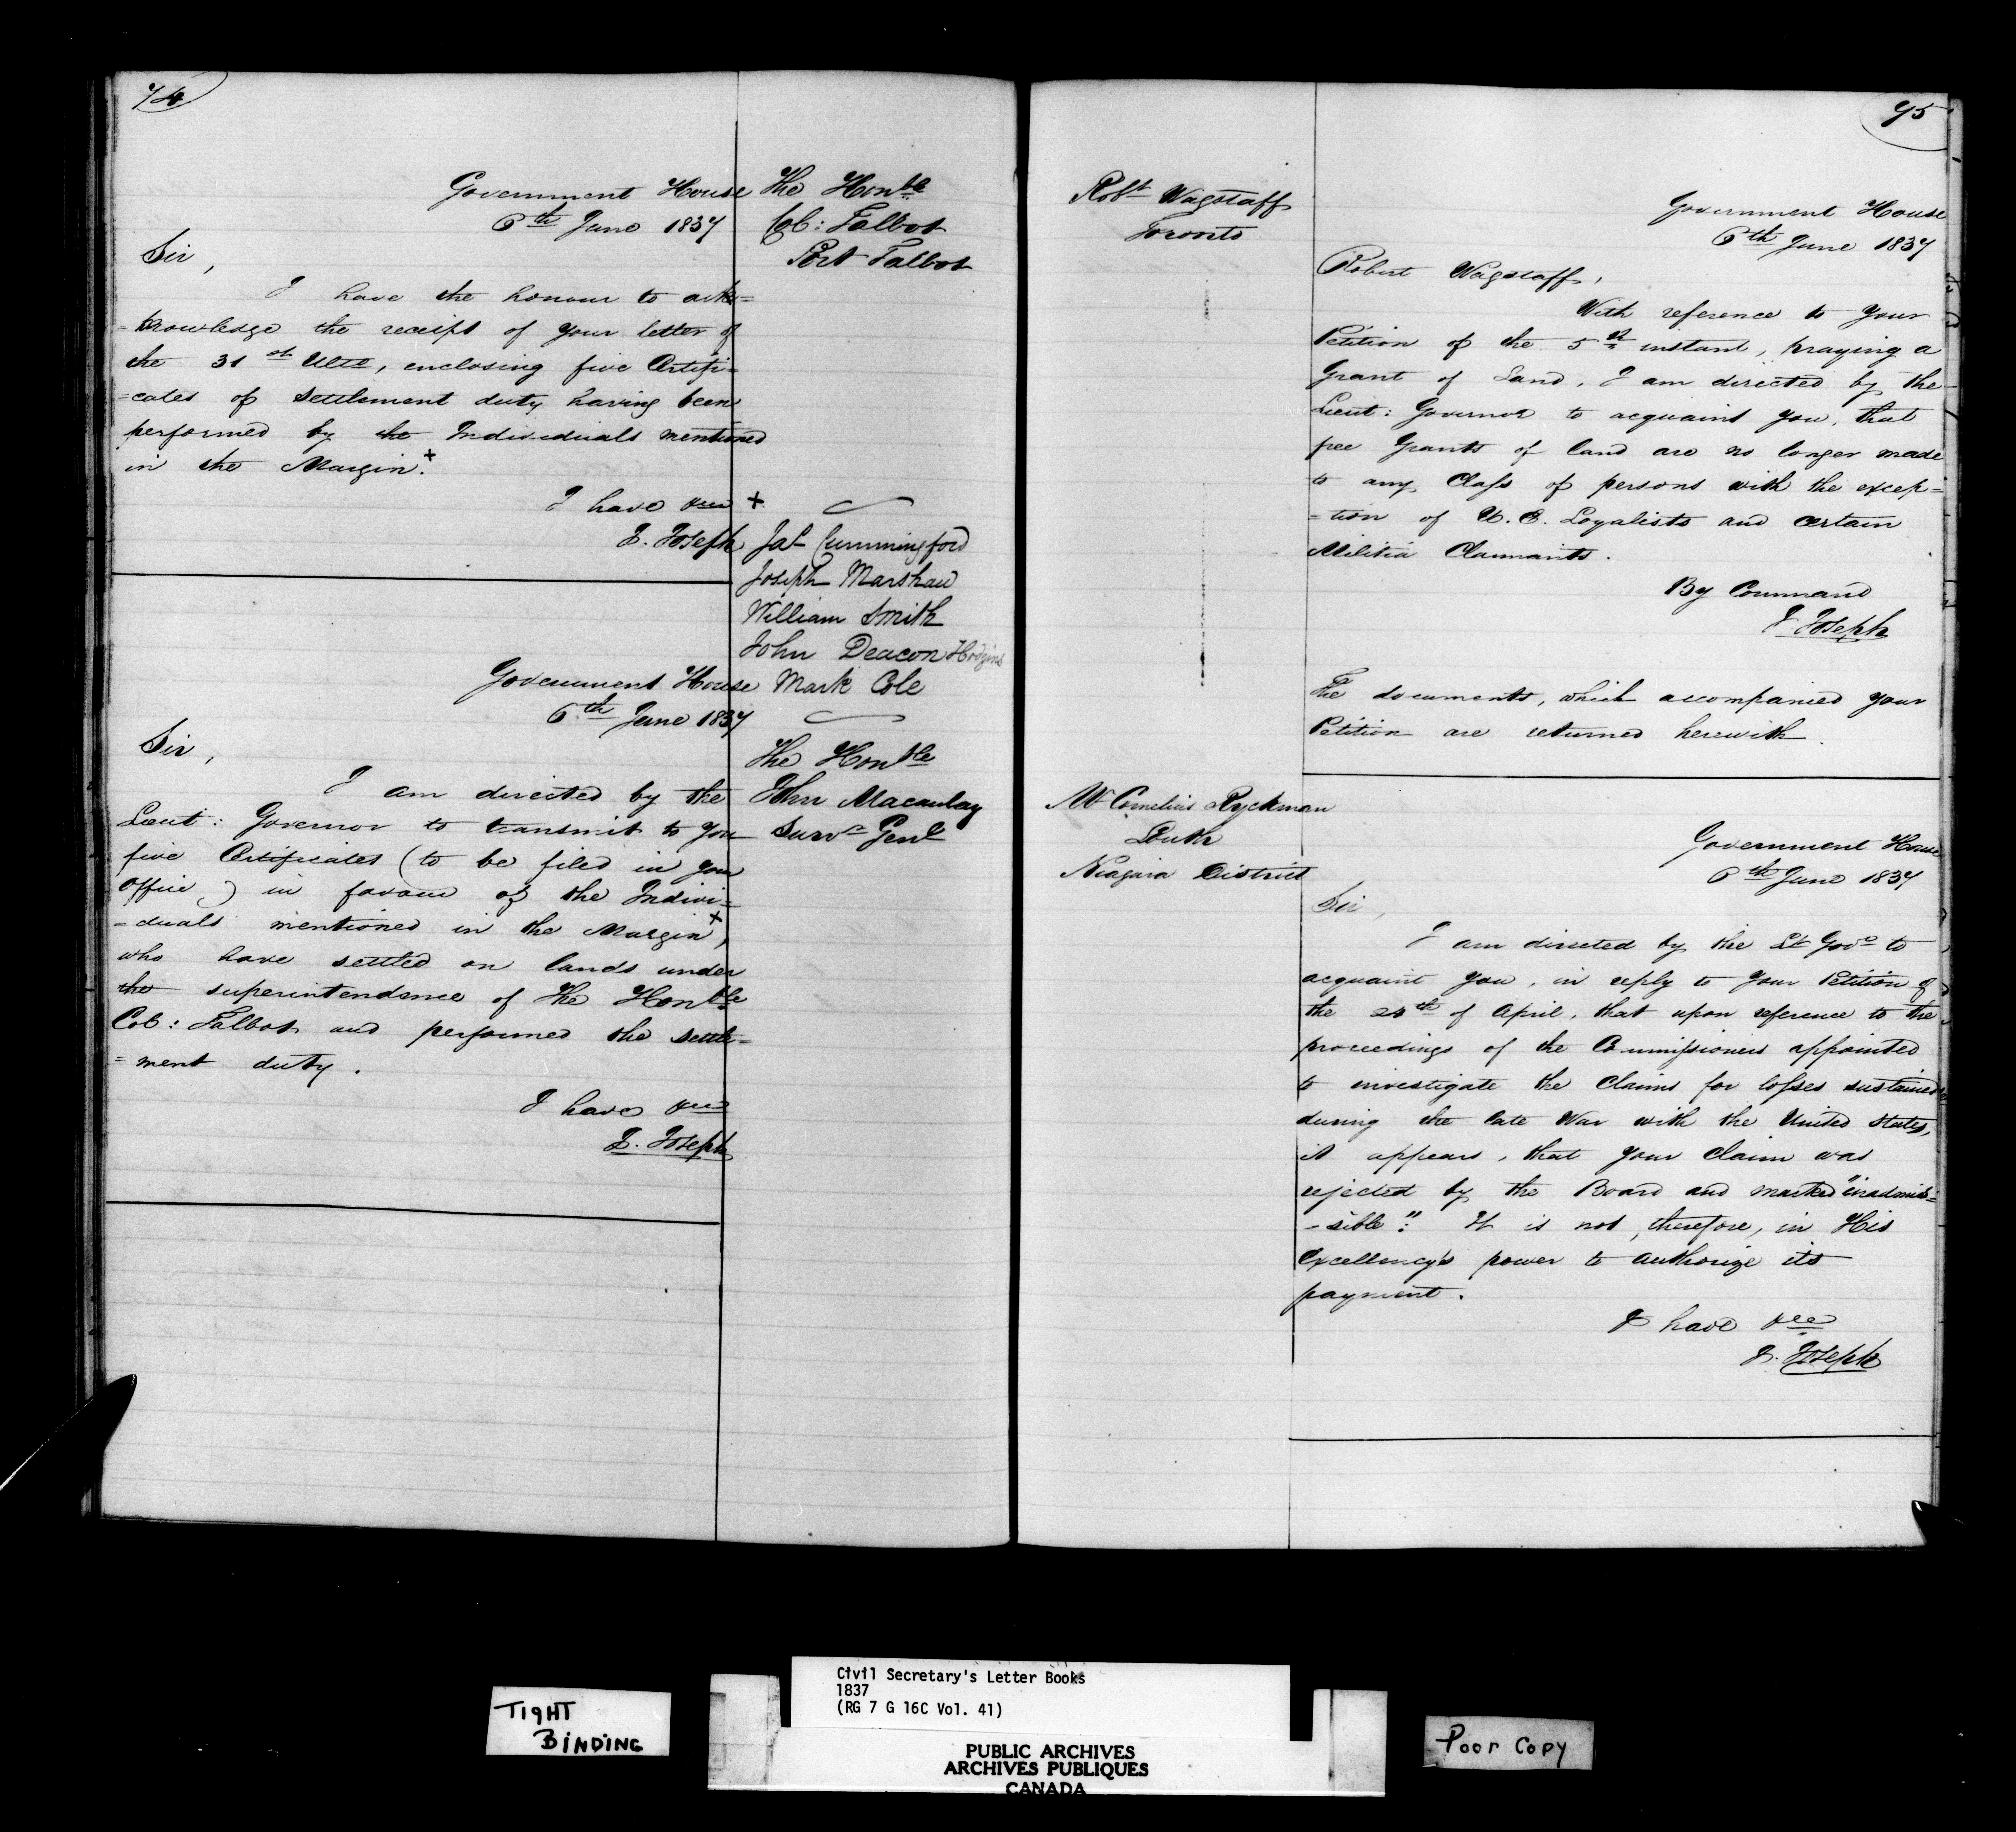 74
Government House
6th June 1837
The Honble
Col: Talbot
Port Talbot
Sir,
I have the honour to ack=
=knowledge the receipt of your letter of
the 31st Ulto, enclosing five Certifi=
=cates of settlement duty having been
performed by the Individuals mentioned
in the Margin.+
I have &ca
J. Joseph
+
Jas Cummingford
Joseph Marshall
William Smith
John Deacon Hodgins
Mark Cole
Government House
6th June 1837
The Honble
John Macaulay
Survr Genl
Sir,
I am directed by the
Lieut: Governor to transmit to you
five Certificates (to be filed in your
Office,) in favour of the Indivi=
-duals mentioned in the Margin+,
who have settled on lands under
the superintendence of The Honble
Col: Talbot and performed the settle=
=ment duty.
I have &ca
J. Joseph
75
Robt Wagstaff
Toronto
Government House
6th June 1837
Robert Wagstaff,
With reference to your
Petition of the 5th instant, praying a
Grant of Land, I am directed by the
Lieut: Governor to acquaint you, that
free Grants of land are no longer made
to any Class of persons with the excep=
=tion of U.E. Loyalists and certain
Militia Claimants.
By Command
J. Joseph
The documents, which accompanied your
Petition are returned herewith.
Mr Cornelius Ryckman
Louth
Niagara District
Government House
6th June 1837
Sir,
I am directed by the Lt Govr to
acquaint you, in reply to your Petition of
the 24th of April, that upon reference to the
proceedings of the Commissioners appointed
to investigate the Claims for losses sustained
during the late War with the United States,
it appears, that your claim was
rejected by the Board and marked "inadmis=
-sible": It is not, therefore, in His
Excellency's power to authorize its
payment.
I have &ca
J. Joseph
TIGHT
BINDING
Civil Secretary's Letter Books
1837
(RG 7 G 16C Vol. 41)
PUBLIC ARCHIVES
ARCHIVES PUBLIQUES
CANADA
Poor Copy